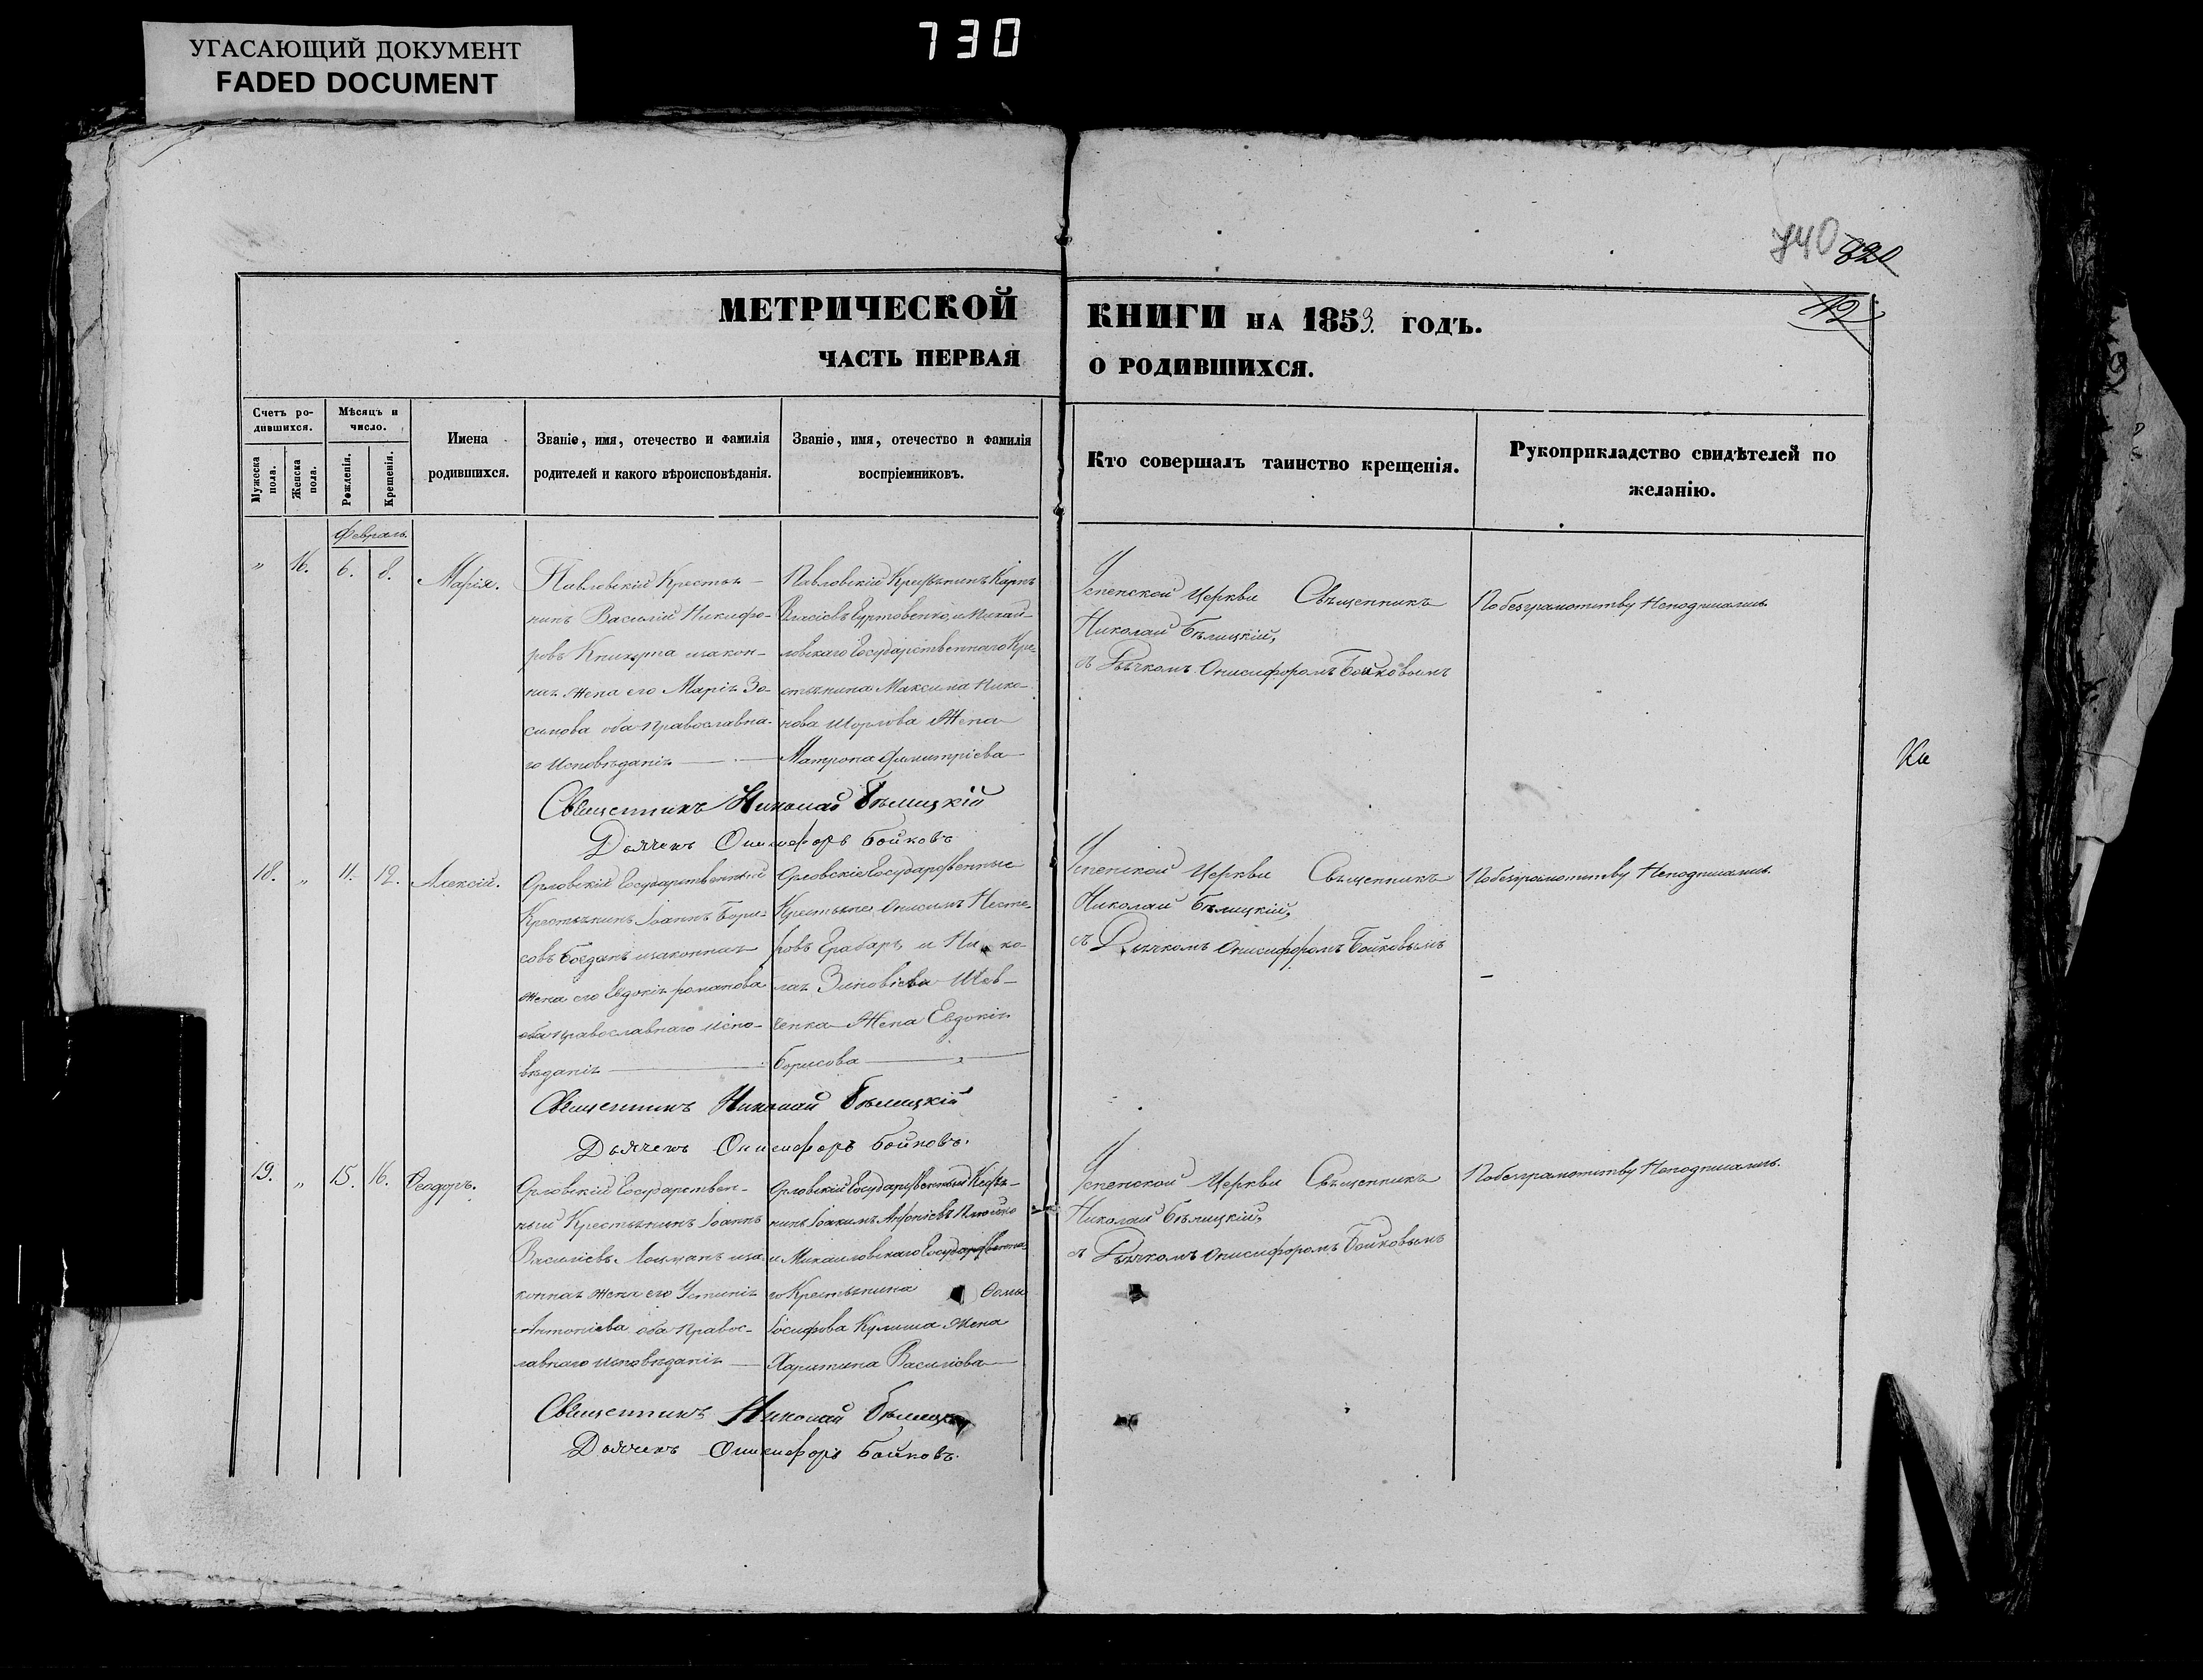 УГАСАЮЩИЙ ДОКУМЕНТ
FADED DOCUMENT
730
740 820
МЕТРИЧЕСКОЙ КНИГИ НА 1853. ГОДЪ.
ЧАСТЬ ПЕРВАЯ О РОДИВШИХСЯ.
Счетъ ро-
дившихся.
Мужеска пола.
Женска пола.
Мѣсяцъ и
число.
Рожденія.
Крещенія.
Имена
родившихся.
Званіе, имя, отечество и фамилія
родителей и какого вѣроисповѣданія.
Званіе, имя, отечество и фамилія
воспріемниковъ.
Кто совершалъ таинство крещенія.
Рукоприкладство свидѣтелей по
желанію.
Февраль.
" 16. 6. 8. Марія.
Павловскій Крестья-
нинъ Василій Никифо-
ровъ Книхута изакон-
ная жена его Марія Зо-
симова оба православна-
го исповѣданія
Павловскій Крестьянинъ Карпъ
Власіевъ Гуртовенко, и Михай-
ловскаго Государственнаго Кре-
стьянина Максима Нико-
нова Шорлова Жена
Матрона Димитріева
Успенской Церкви Священникъ
Николай Бѣлицкій,
съ Дьячкомъ Онисифоромъ Бойковымъ
По безграмотству Неподписались.
Священникъ Николай Бѣлицкій
Дьячекъ Онисифоръ Бойковъ
Ка
18. " 11. 12. Алексій.
Орловскій Государственный
Крестьянинъ Іоаннъ Бори-
совъ Богданъ изаконная
жена его Евдокія Романова
оба православнаго испо-
вѣданія
Орловскіе Государственные
Крестьяне Онисимъ Несте-
ровъ Грабаръ и Ни ко-
лая Зиновіева Шев-
ченка Жена Евдокія
Борисова
Успенской Церкви Священникъ
Николай Бѣлицкій,
съ Дьячкомъ Онисифоромъ Бойковымъ
По безграмотству Неподписались.
Священникъ Николай Бѣлицкій
Дьячекъ Онисифоръ Бойковъ.
19. " 15. 16. Ѳеодоръ.
Орловскій Государствен-
ный Крестьянинъ Іоаннъ
Василіевъ Лоцманъ иза-
конная жена его Устинія
Антоніева оба Правос-
лавнаго исповѣданія
Орловскій Государственный Крестья-
нинъ Іоакимъ Антоніевъ
и Михаиловскаго Государственна-
го Крестьянина Ѳомы
Іосифова Кулиша Жена
Харитина Василіева
Успенской Церкви Священникъ
Николай Бѣлицкій,
съ Дьячкомъ Онисифоромъ Бойковымъ
По безграмотству Неподписались.
Священникъ Николай Бѣлицкій
Дьячекъ Онисифоръ Бойковъ.